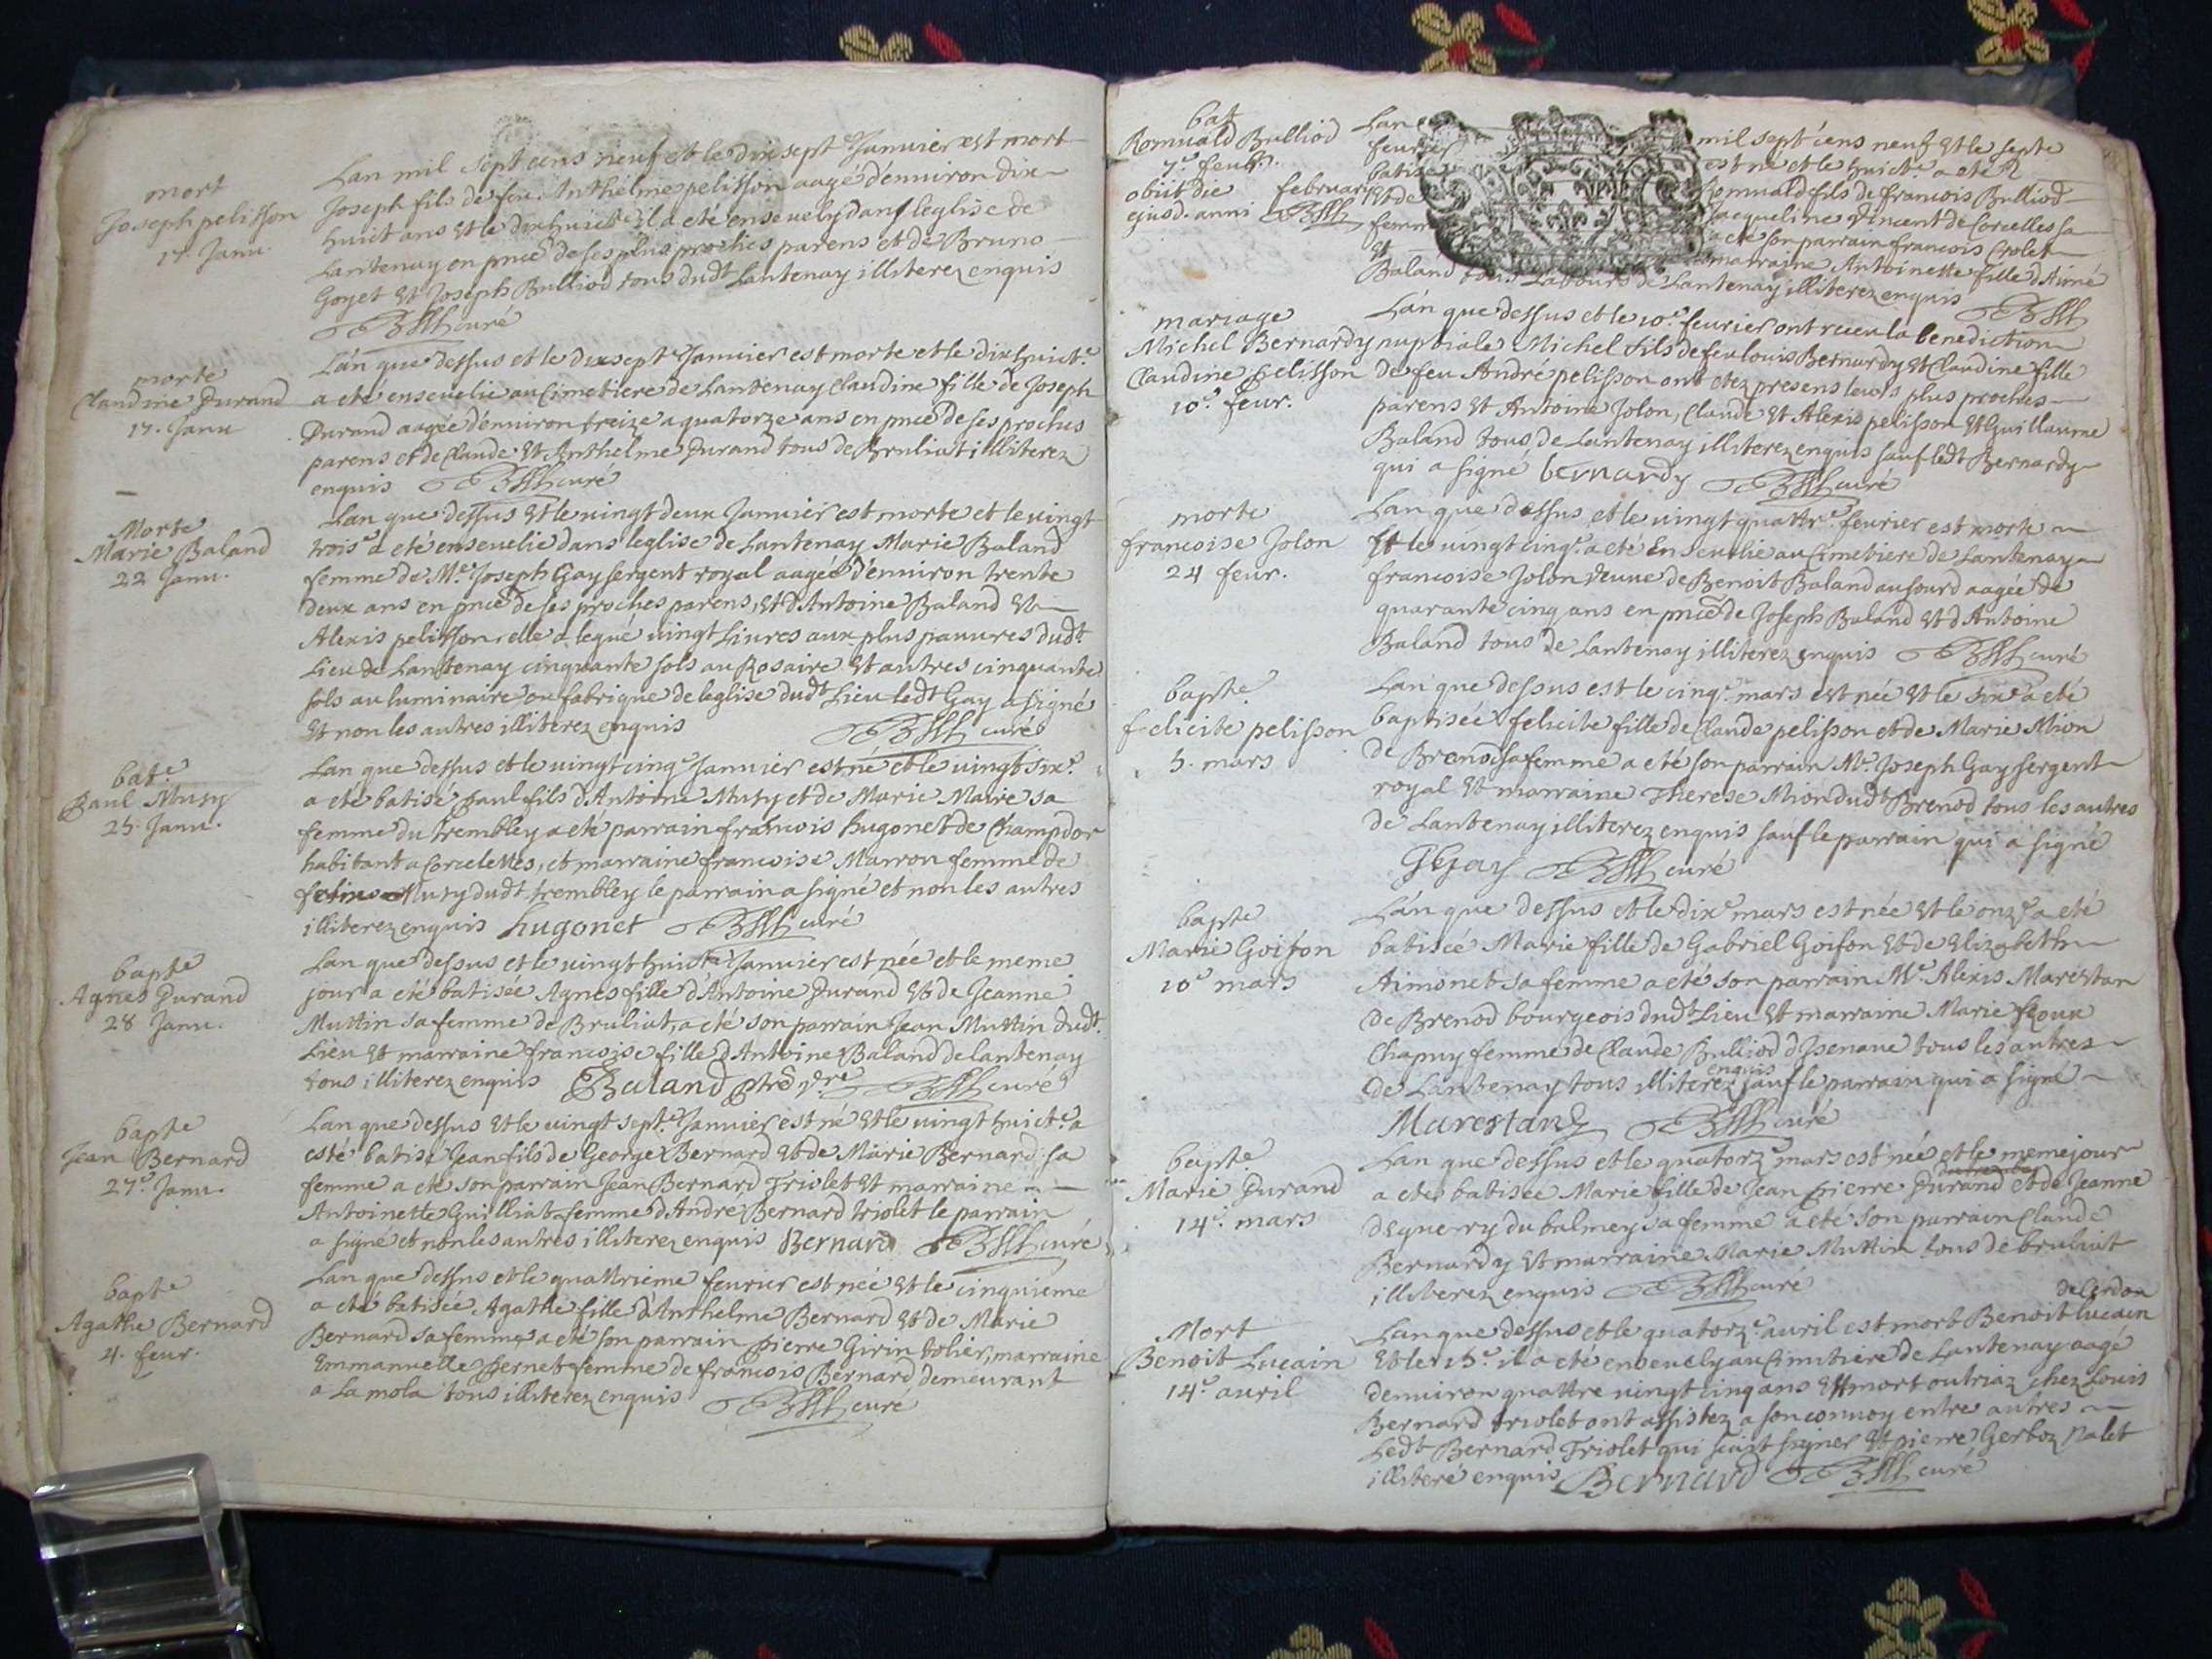 mort
Joseph pelisson
17. Janu.
Lan mil sept cens neuf et le dix sept.e Januier est mort
Joseph fils de feu Anthelme pelisson aagé d'enuiron dix
huict ans et le dix huict.e il a eté enseuely dans leglise de
Lantenay en pnce de ses plus proches parens et de Bruno
Goyet et Joseph Bulliod tous dudt Lantenay illiterez enquis
curé
morte
Claudine Durand
17. Janu
Lan que dessus et le dix sept.e Januier est morte et le dix huict.e
a eté enseuelie au Cimetiere de Lantenay Claudine fille de Joseph
Durand aagée d'enuiron treize a quatorze ans en pnce de ses proches
parens et de Claude et Anthelme Durand tous de Bruliat illiterez
enquis curé
Morte
Marie Baland
22 Janu.
Lan que dessus et le uingt deux Januier est morte et le uingt
trois.e a eté enseuelie dans leglise de Lantenay Marie Baland
femme de M.e Joseph Gay sergent royal aagée d'enuiron trente
deux ans en pnce de ses proches parens, et d'Antoine Baland et
Alexis pelisson, elle a legué uingt Liures aux plus pauures dudt
Lieu de Lantenay cinquante sols au Rosaire et autres cinquante
sols au luminaire ou fabrique de leglise dudt Lieu ledt Gay a signé
et non les autres illiterez enquis curé
bat.e
Paul Musy
25. Janu.
Lan que dessus et le uingt cinq.e Januier est né et le uingt six.e
a eté batisé Paul fils d'Antoine Musy et de Marie Maire sa
femme du trembley a eté parrain francois hugonet de Champdor
habitant a sorcelettes, et marraine francoise Marron femme de
Musy dudt trembley le parrain a signé et non les autres
illiterez enquis hugonet curé
bapte
Agnes Durand
28 Janu.
Lan que dessus et le uingt huict.e Januier est née et le meme
jour a eté batisée Agnes fille d'Antoine Durand et de Jeanne
Muttin sa femme de Bruliat, a eté son parrain Jean Muttin dudt
Lieu et marraine francoise fille d'Antoine Baland de lantenay
tous illiterez enquis Baland ptre v.re curé
bapte
Jean Bernard
27.e Janu.
Lan que dessus et le uingt sept.e Januier est né et le uingt huict.e a
esté batisé Jean fils de George Bernard et de Marie Bernard sa
femme a eté son parrain Jean Bernard Triolet et marraine
Antoinette Guilliat femme d'André Bernard triolet le parrain
a signé et non les autres illiterez enquis Bernard curé
bapte
Agathe Bernard
4. feur.
Lan que dessus et le quattrieme feurier est née et le cinquieme
a eté batisée Agathe fille d'Anthelme Bernard et de Marie
Bernard sa femme a eté son parrain pierre Girin tolier, marraine
Emmanuelle pernet femme de francois Bernard demeurant
a La mola tous illiterez enquis curé
bat
Romuald Bulliod
7.e feur.
obiit die februarii
ejusd. anni
Lan mil sept cens neuf et le septe
feurier est né et le huict.e a eté
batisé Romuald fils de francois Bulliod
et de Jacqueline Vincent de sorcelles sa
femme a eté son parrain francois Crolet
et marraine Antoinette fille d'Aimé
Baland tous Labours de Lantenay illiterez enquis
mariage
Michel Bernardy
Claudine Pelisson
10.e feur.
Lan que dessus et le 10.e feurier ont receu la benediction
nuptiale Michel fils de feu louis Bernardy et Claudine fille
de feu André pelisson ont etez presens leurs plus proches
parens et Antoine Jolon, Claude et Alexis pelisson et Guillaume
Baland tous de Lantenay illiterez enquis sauf ledt Bernardy
qui a signé bernardy curé
morte
francoise Jolon
24 feur.
Lan que dessus et le uingt quattr.e feurier est morte
Et le uingt cinq.e a eté Enseuelie au Cimetiere de Lantenay
francoise Jolon veuue de Benoit Baland au sourd aagée de
quarante cinq ans en pnce de Joseph Baland et d'Antoine
Baland tous de Lantenay illiterez enquis curé
bapte.
felicite pelisson
5. mars
Lan que dessus est le cinq.e mars est née et le six.e a eté
baptisée felicite fille de Claude pelisson et de Marie Mion
de Brenod sa femme a eté son parrain M.e Joseph Gay sergent
royal et marraine Therese Mion dudt Brenod tous les autres
de Lantenay illiterez enquis sauf le parrain qui a signé
JGay curé
bapte
Marie Goifon
10.e mars
Lan que dessus et le dix.e mars est née et le onz.e a eté
batisée Marie fille de Gabriel Goifon et de Elizabeth
Aimonet sa femme a eté son parrain M.e Alexis Marestan
de Brenod bourgeois dudt Lieu et marraine Marie floux
Chapuy femme de Claude Bulliod d'Isenaue tous les autres
de Lantenay tous illiterez enquis sauf le parrain qui a signé
Marestan curé
bapte
Marie Durand
14.e mars
Lan que dessus et le quatorz.e mars est née et le meme jour
a eté batisée Marie fille de Jean Pierre Durand et de Jeanne
deguerry du balmey sa femme a eté son parrain Claude
Bernardy et marraine Marie Muttin tous de bruliat
illiterez enquis curé
Mort
Benoit Lucain
14.e auril
de Cerdon
Lan que dessus et le quatorz.e auril est mort Benoit lucain
et le 15.e il a eté enseuely au Cimitiere de Lantenay aagé
denuiron quattre uingt cinq ans et mort outriaz chez Louis
Bernard triolet ont assistez a son conuoy entre autres
Ledt Bernard Triolet qui scait signer et pierre Gerboz valet
illiteré enquis Bernard curé